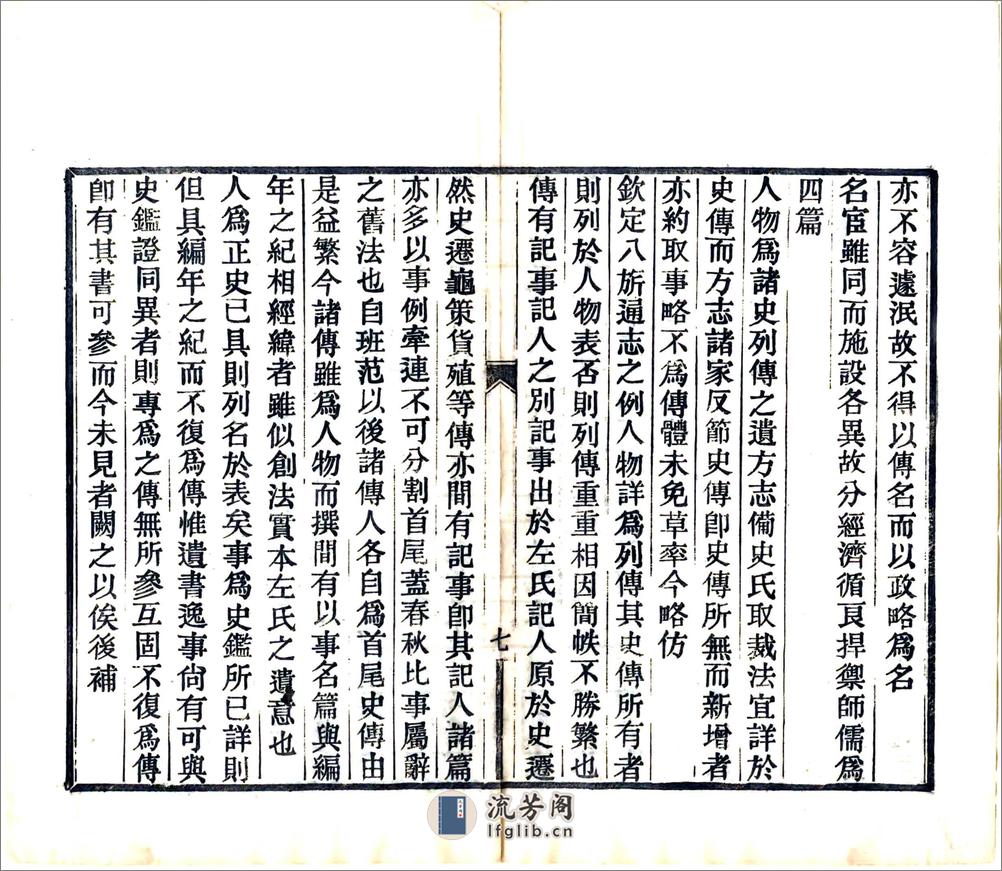 亦不容遽泯故不得以傳名而以政略爲名
名宦雖同而施設各異故分經濟循良捍禦師儒爲
四篇
人物爲諸史列傳之遺方志備史氏取裁法宜詳於
史傳而方志諸家反節史傳卽史傳所無而新增者
亦約取事略不爲傳體未免草率今略仿
欽定八旂通志之例人物詳爲列傳其史傳所有者
則列於人物表否則列傳重重相因簡帙不勝繁也
傳有記事記人之別記事出於左氏記人原於史遷
七
然史遷龜策貨殖等傳亦間有記事卽其記人諸篇
亦多以事例牽連不可分割首尾蓋春秋比事屬辭
之舊法也自班范以後諸傳人各自爲首尾史傳由
是益繁今諸傳雖爲人物而撰間有以事名篇與編
年之紀相經緯者雖似創法實本左氏之遺意也
人爲正史已具則列名於表矣事爲史鑑所已詳則
但具編年之紀而不復爲傳惟遺書逸事尙有可與
史鑑證同異者則專爲之傳無所參互固不復爲傳
卽有其書可參而今未見者闕之以俟後補
流芳阁
lfglib.cn